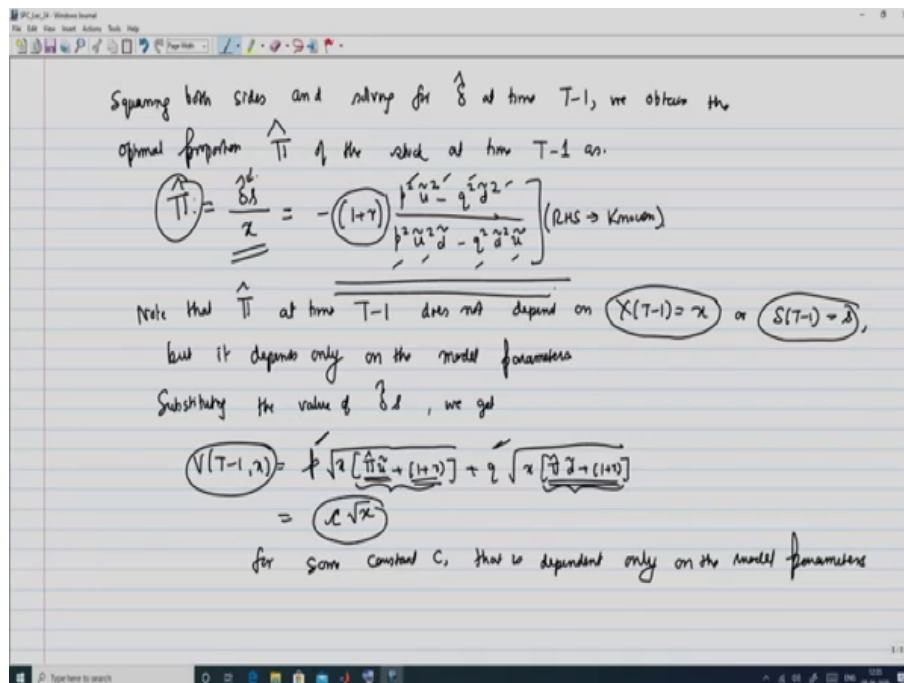 SPC_Lec_24 - Windows Journal
File Edit View Insert Actions Tools Help
Page Width
Squaring both sides and solving for δ̂ at time T-1, we obtain the
optimal proportion Π̂ of the stock at time T-1 as.
Π̂ = δ̂s/x = -(1+r) (p²ũ² - q²d̃²)/(p²ũ²d̃ - q²d̃²ũ) ] (RHS → Known)
Note that Π̂ at time T-1 does not depend on X(T-1) = x or S(T-1) = s,
but it depends only on the model parameters
Substituting the value of δ̂s, we get
V(T-1,x) = p √x[Π̂ũ + (1+r)] + q √x[Π̂d̃ + (1+r)]
= c√x
for some constant C, that is dependent only on the model parameters
Type here to search
ENG